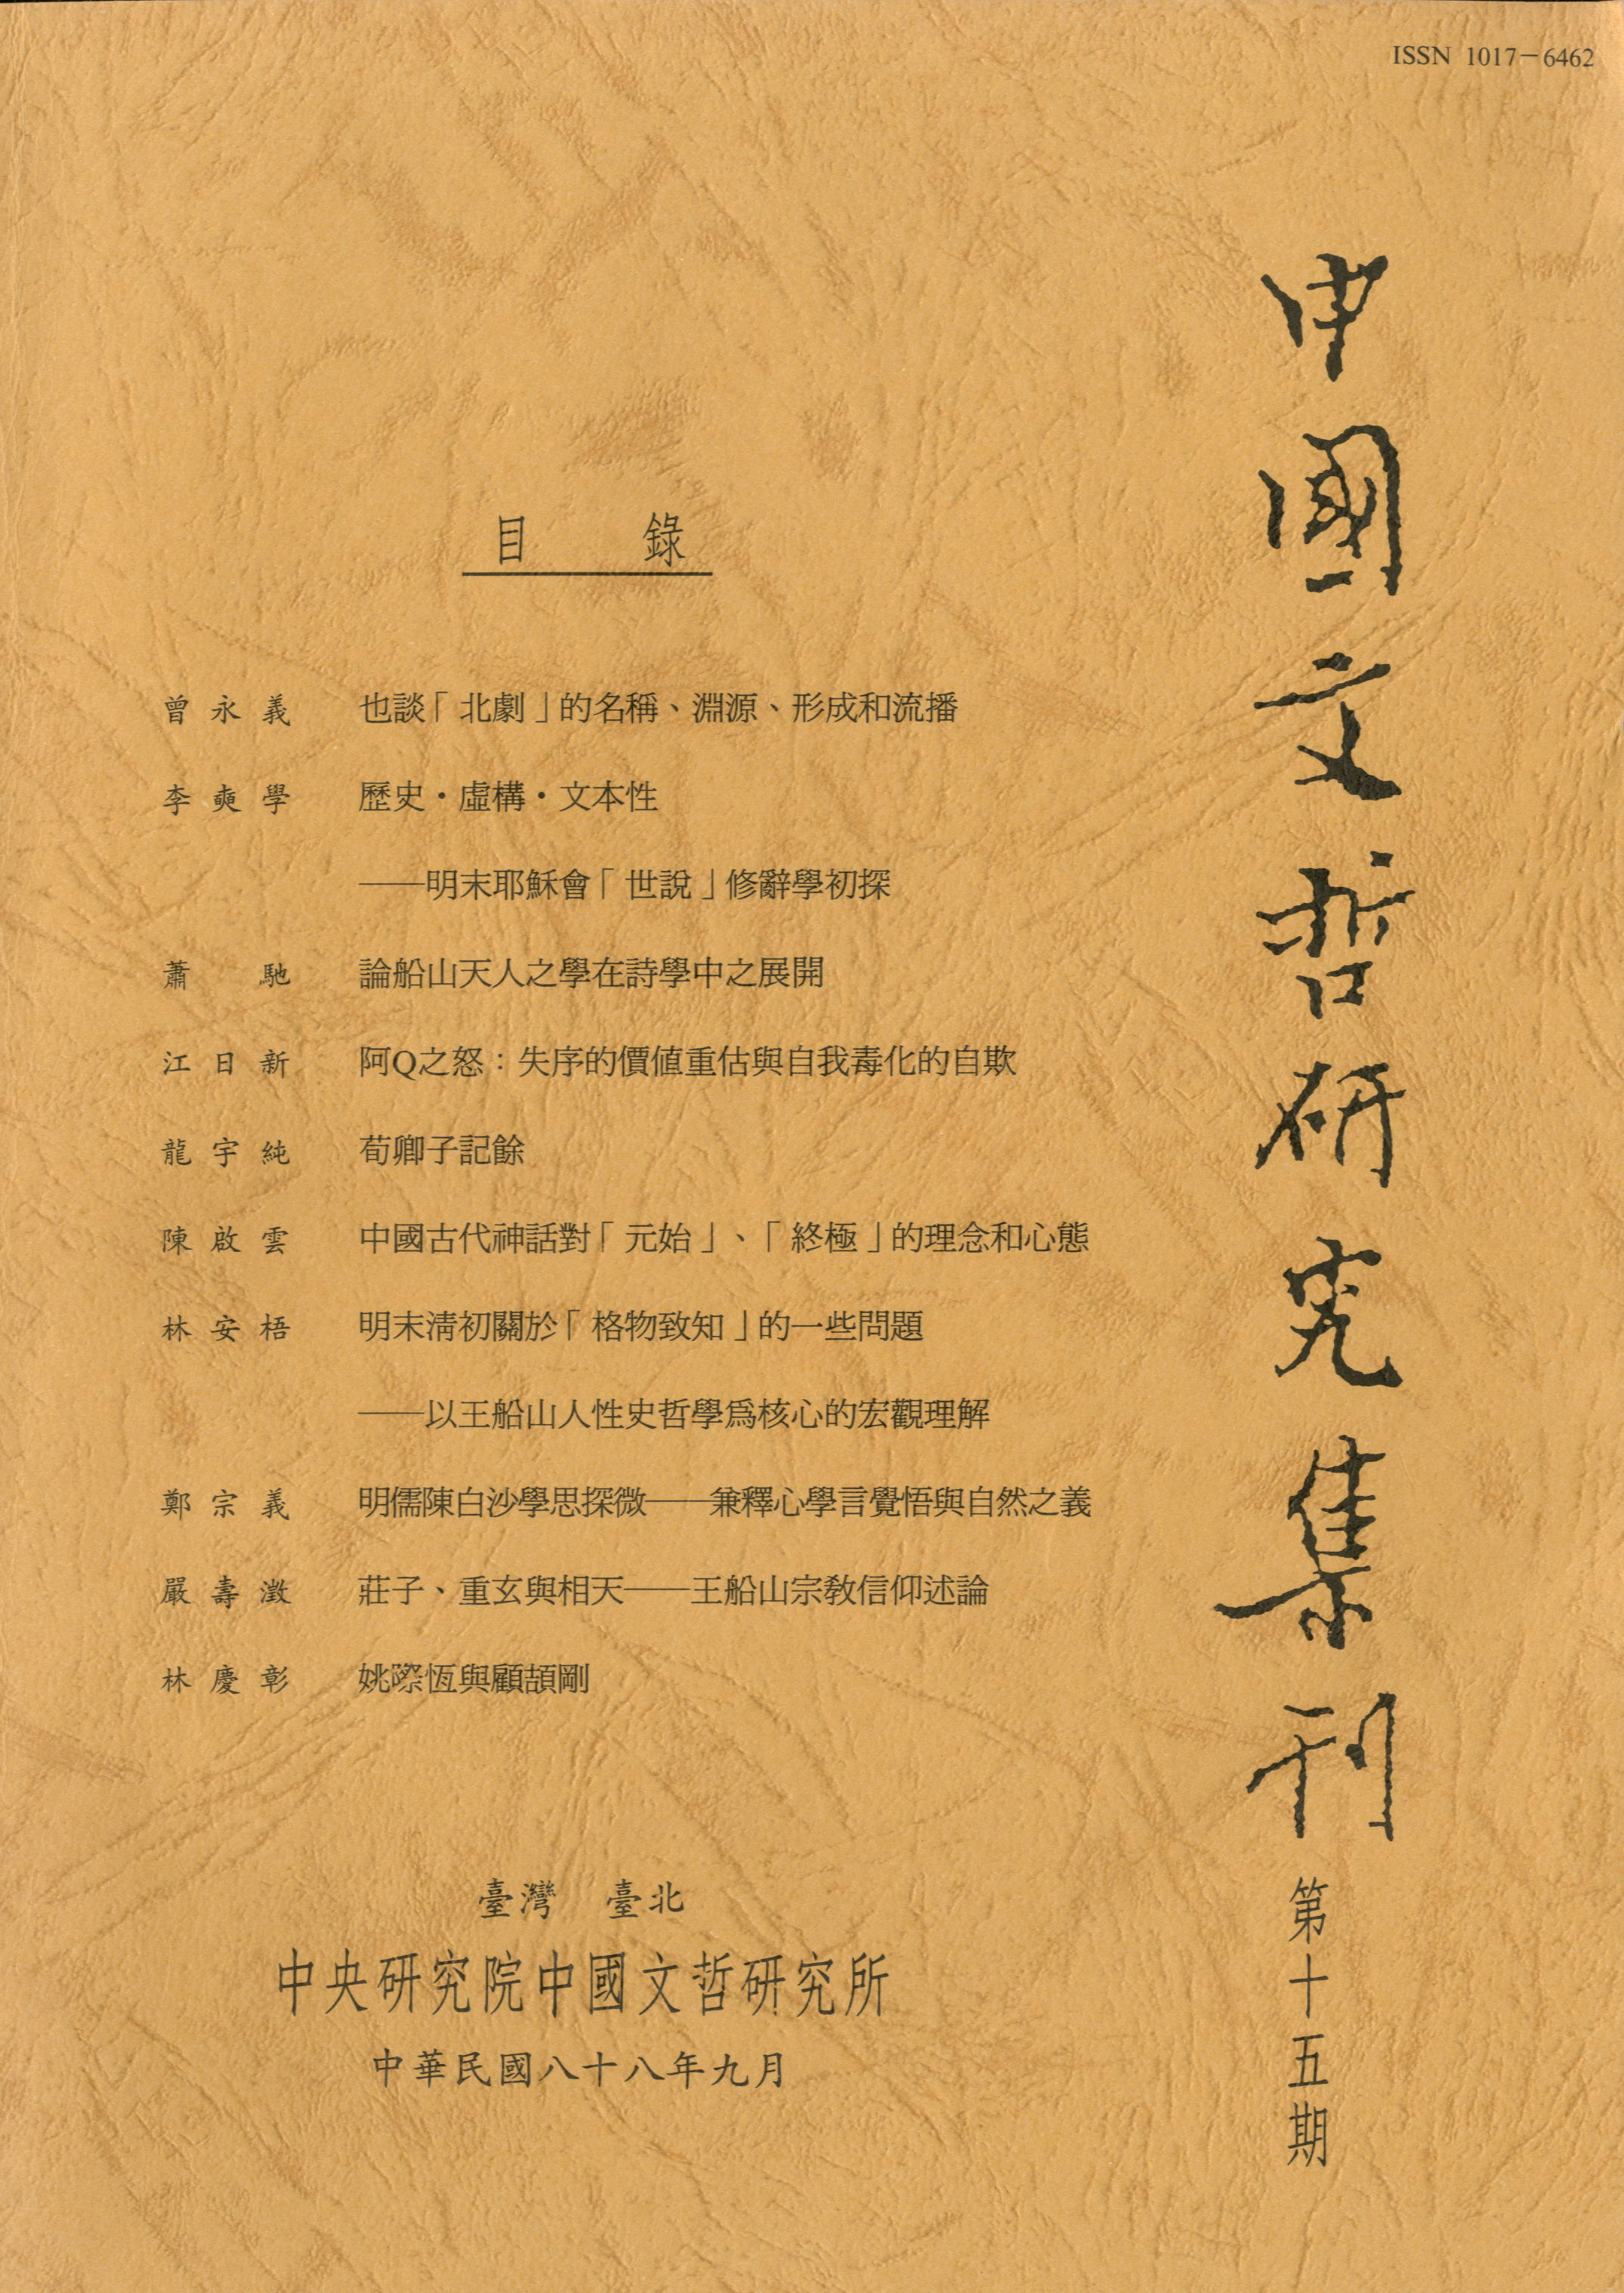 ISSN 1017－6462
中國文哲研究集刊
第十五期
目　錄
曾永義　也談「北劇」的名稱、淵源、形成和流播
李奭學　歷史・虛構・文本性
——明末耶穌會「世說」修辭學初探
蕭　馳　論船山天人之學在詩學中之展開
江日新　阿Q之怒：失序的價值重估與自我毒化的自欺
龍宇純　荀卿子記餘
陳啟雲　中國古代神話對「元始」、「終極」的理念和心態
林安梧　明末清初關於「格物致知」的一些問題
——以王船山人性史哲學爲核心的宏觀理解
鄭宗義　明儒陳白沙學思探微——兼釋心學言覺悟與自然之義
嚴壽澂　莊子、重玄與相天——王船山宗教信仰述論
林慶彰　姚際恆與顧頡剛
臺灣　臺北
中央研究院中國文哲研究所
中華民國八十八年九月